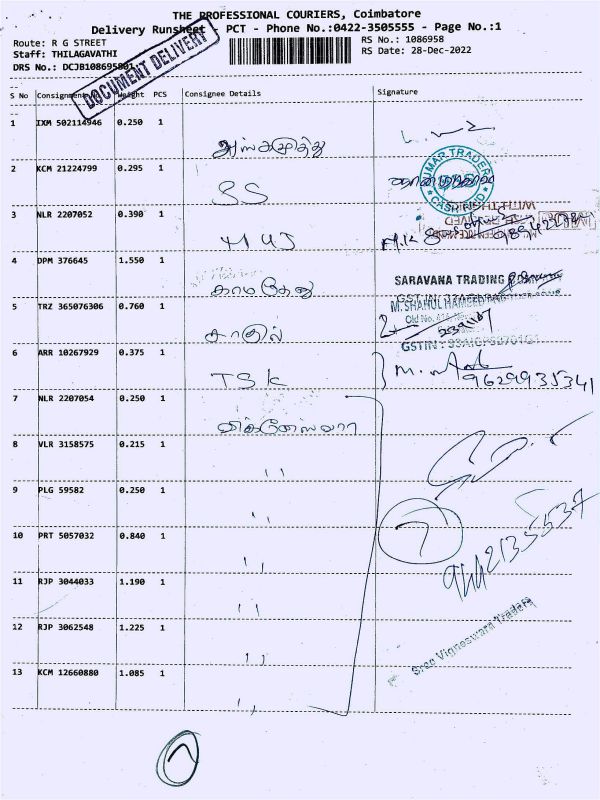 THE PROFESSIONAL COURIERS, Coimbatore
Delivery Runsheet PCT - Phone No.:0422-3505555 - Page No.:1
Route: R G STREET
RS No.: 1086958
Staff: THILAGAVATHI
RS Date: 28-Dec-2022
DRS No.: DCJB108695801
DOCUMENT DELIVERY
S No Consignment Weight PCS Consignee Details Signature
1 IXM 502114946 0.250 1
2 KCM 21224799 0.295 1 SS
UMAR TRADERS
3 NLR 2207052 0.390 1
4 DPM 376645 1.550 1 காமதேனு
SARAVANA TRADING
5 TRZ 365076306 0.760 1 காதில்
M. SHAHUL HAMEED
GSTIN :
6 ARR 10267929 0.375 1 TSK
9629935341
7 NLR 2207054 0.250 1 விக்னேஸ்வரா
8 VLR 3158575 0.215 1 ''
9 PLG 59582 0.250 1 ''
10 PRT 5057032 0.840 1 ''
7
11 RJP 3044033 1.190 1 ''
12 RJP 3062548 1.225 1 ''
Sree Vigneswara Traders
13 KCM 12660880 1.085 1 ''
7